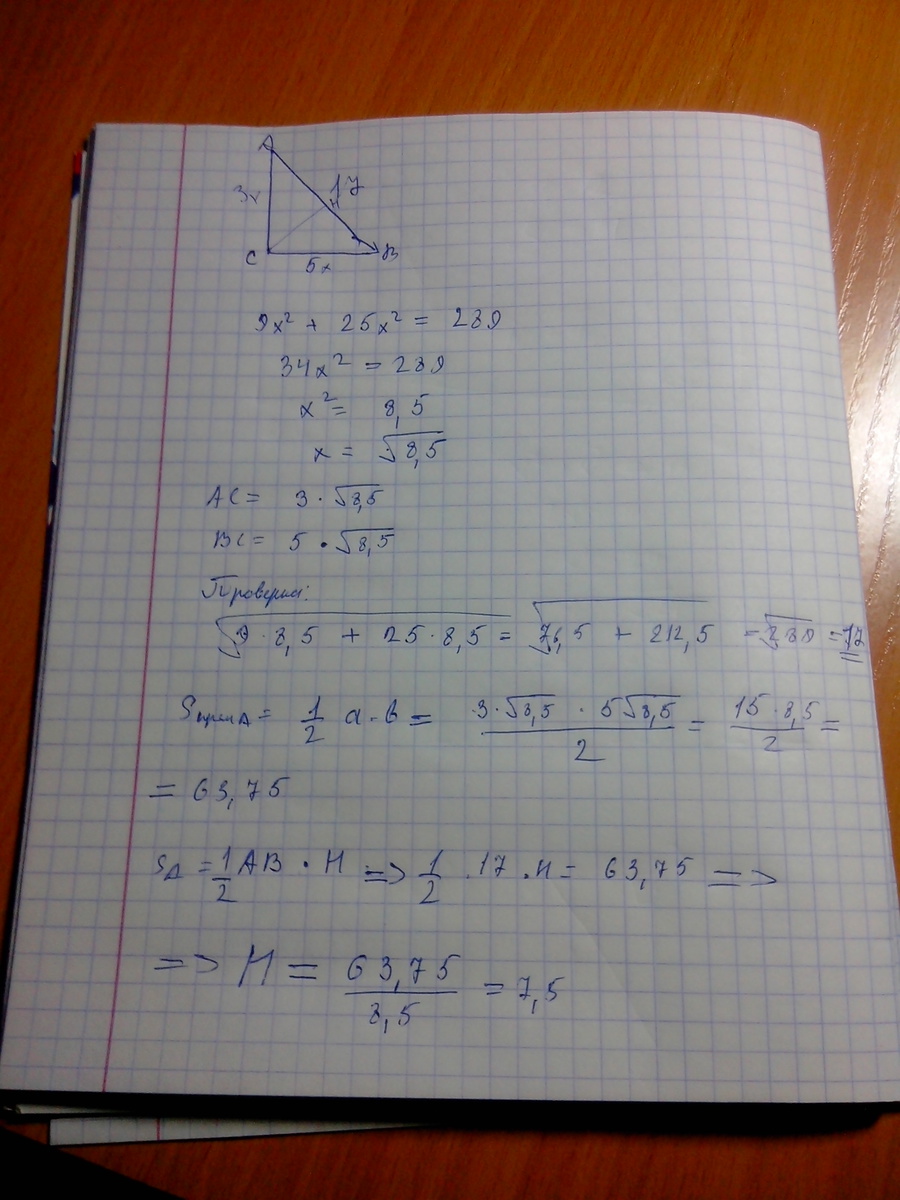 A
3x
17
H
C
B
5x
9x² + 25x² = 289
34x² = 289
x² = 8,5
x = √8,5
AC = 3 · √8,5
BC = 5 · √8,5
Проверка:
√(9 · 8,5 + 25 · 8,5) = √(76,5 + 212,5) = √289 = 17
Sпрям∆ = 1/2 a · b = (3 · √8,5 · 5√8,5)/2 = (15 · 8,5)/2 =
= 63,75
S∆ = 1/2 AB · H => 1/2 · 17 · H = 63,75 =>
=> H = 63,75/8,5 = 7,5